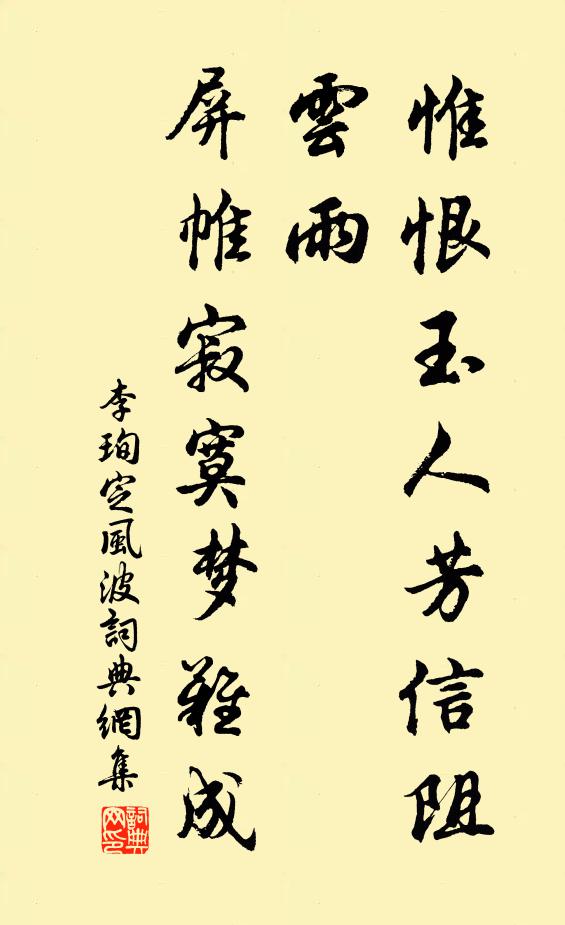 惟恨玉人芳信阻
雲雨
屏帷寂寞梦難成
李珣定風波詞典網集
詞典網印